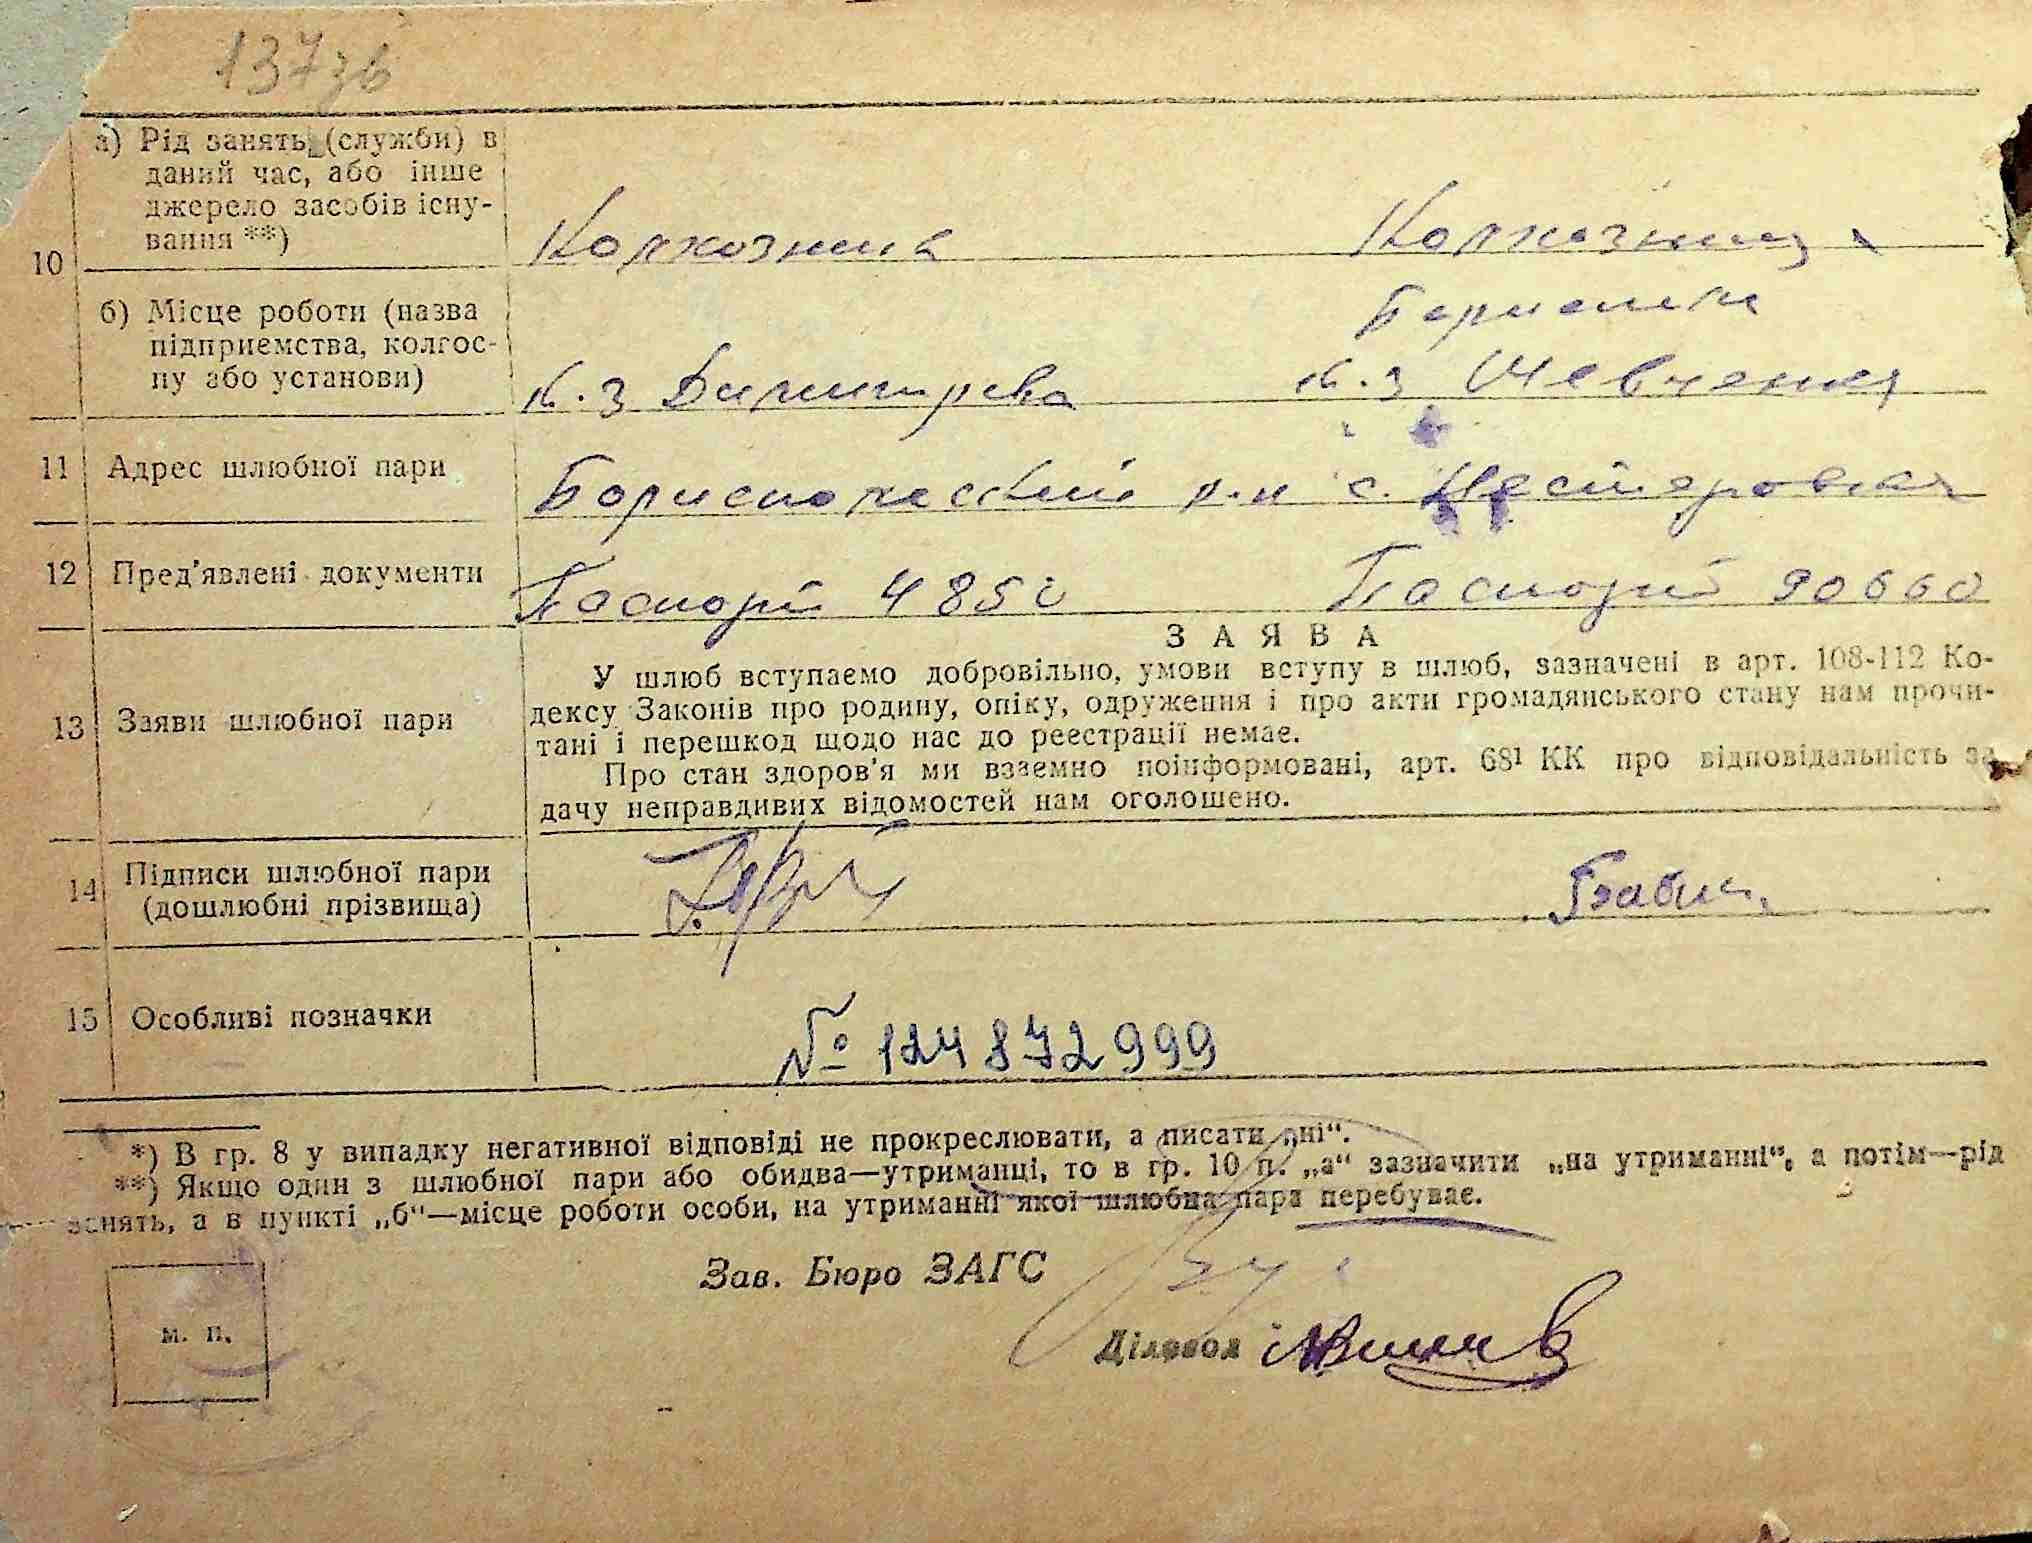 137зв
а) Рід занять (служби) в
даний час, або інше
джерело засобів існу-
вання **)
Колхозник Колхозница
10
б) Місце роботи (назва
підприємства, колгос-
пу або установи)
к.з Димитрова к.з Шевченка
11 Адрес шлюбної пари Бориспольский р-н с. Нестеровка
12 Пред'явлені документи Паспорт 4850 Паспорт 90660
ЗАЯВА
13 Заяви шлюбної пари
У шлюб вступаємо добровільно, умови вступу в шлюб, зазначені в арт. 108-112 Ко-
дексу Законів про родину, опіку, одруження і про акти громадянського стану нам прочи-
тані і перешкод щодо нас до реєстрації немає.
Про стан здоров'я ми взаємно поінформовані, арт. 68¹ КК про відповідальність за
дачу неправдивих відомостей нам оголошено.
14 Підписи шлюбної пари
(дошлюбні прізвища)
15 Особливі позначки № 124872999
*) В гр. 8 у випадку негативної відповіді не прокреслювати, а писати „ні“.
**) Якщо один з шлюбної пари або обидва—утриманці, то в гр. 10 п. „а“ зазначити „на утриманні“, а потім—рід
занять, а в пункті „б“—місце роботи особи, на утриманні якої шлюбна пара перебуває.
Зав. Бюро ЗАГС
м. п.
Діловод